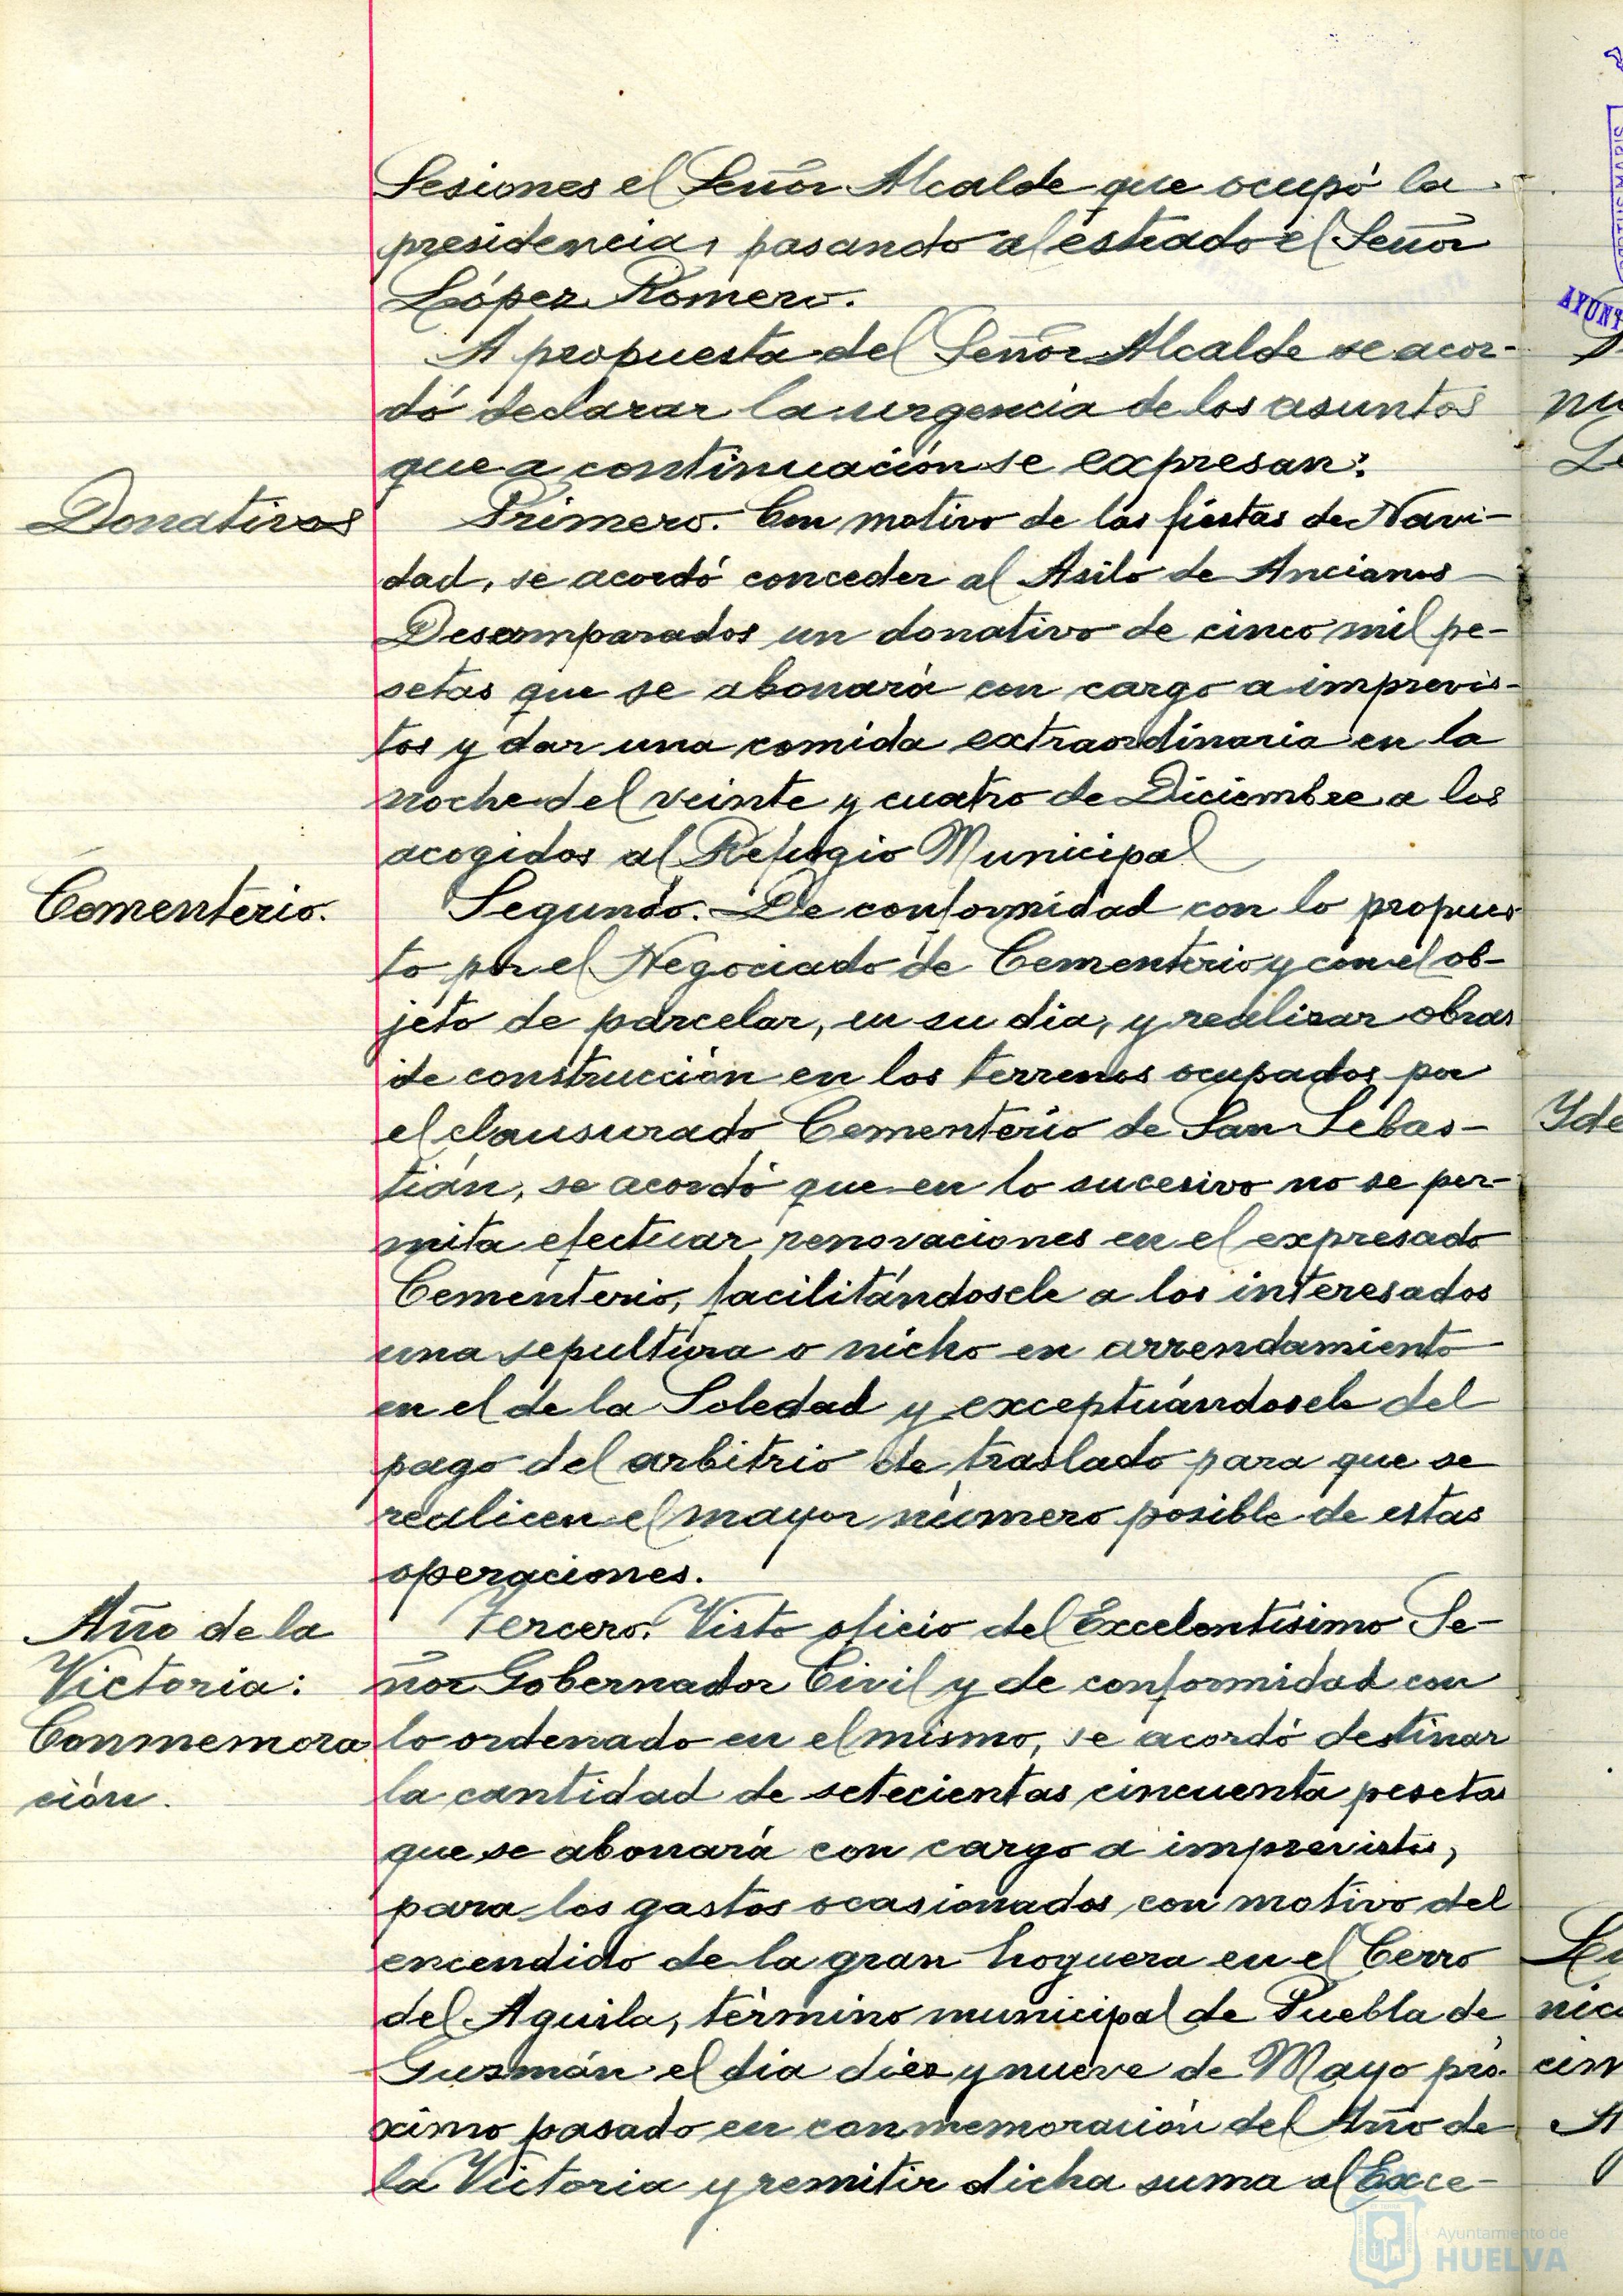 Sesiones el Señor Alcalde que ocupó la
presidencia, pasando al estrado el Señor
López Romero.
A propuesta del Señor Alcalde se acor-
dó declarar la urgencia de los asuntos
que a continuación se expresan:
Donativos
Primero. Con motivo de las fiestas de Navi-
dad, se acordó conceder al Asilo de Ancianos
Desamparados un donativo de cinco mil pe-
setas que se abonará con cargo a imprevis-
tos y dar una comida extraordinaria en la
noche del veinte y cuatro de Diciembre a los
acogidos al Refugio Municipal
Cementerio.
Segundo. De conformidad con lo propues-
to por el Negociado de Cementerio y con el ob-
jeto de parcelar, en su dia, y realizar obras
de construcción en los terrenos ocupados por
el clausurado Cementerio de San Sebas-
tián, se acordó que en lo sucesivo no se per-
mita efectuar renovaciones en el expresado
Cementerio, facilitándosele a los interesados
una sepultura o nicho en arrendamiento
en el de la Soledad y exceptuándosele del
pago del arbitrio de traslado para que se
realicen el mayor número posible de estas
operaciones.
Año de la
Victoria:
Conmemora
ción.
Tercero. Visto oficio del Excelentísimo Se-
ñor Gobernador Civil y de conformidad con
lo ordenado en el mismo, se acordó destinar
la cantidad de setecientas cincuenta pesetas
que se abonará con cargo a imprevistos,
para los gastos ocasionados con motivo del
encendido de la gran hoguera en el Cerro
del Aguila, término municipal de Puebla de
Guzmán el dia diez y nueve de Mayo pró-
ximo pasado en conmemoración del Año de
la Victoria y remitir dicha suma al Exce-
Ayuntamiento de
HUELVA